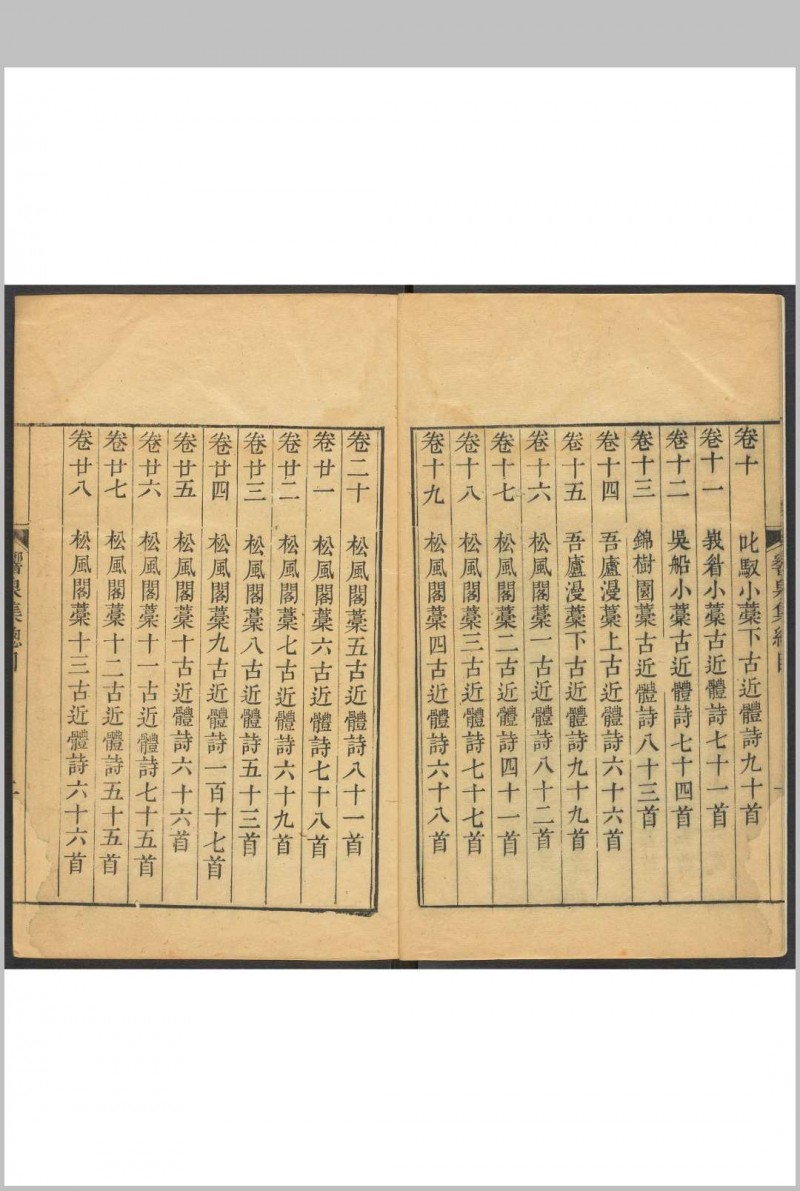 卷十 叱馭小藁下古近體詩九十首
卷十一 峩眷小藁古近體詩七十一首
卷十二 吳船小藁古近體詩七十四首
卷十三 錦樹園藁古近體詩八十三首
卷十四 吾廬漫藁上古近體詩六十六首
卷十五 吾廬漫藁下古近體詩九十九首
卷十六 松風閣藁一古近體詩八十二首
卷十七 松風閣藁二古近體詩四十一首
卷十八 松風閣藁三古近體詩七十七首
卷十九 松風閣藁四古近體詩六十八首
卷二十 松風閣藁五古近體詩八十一首
卷廿一 松風閣藁六古近體詩七十八首
卷廿二 松風閣藁七古近體詩六十九首
卷廿三 松風閣藁八古近體詩五十三首
卷廿四 松風閣藁九古近體詩一百十七首
卷廿五 松風閣藁十古近體詩六十六首
卷廿六 松風閣藁十一古近體詩七十五首
卷廿七 松風閣藁十二古近體詩五十五首
卷廿八 松風閣藁十三古近體詩六十六首